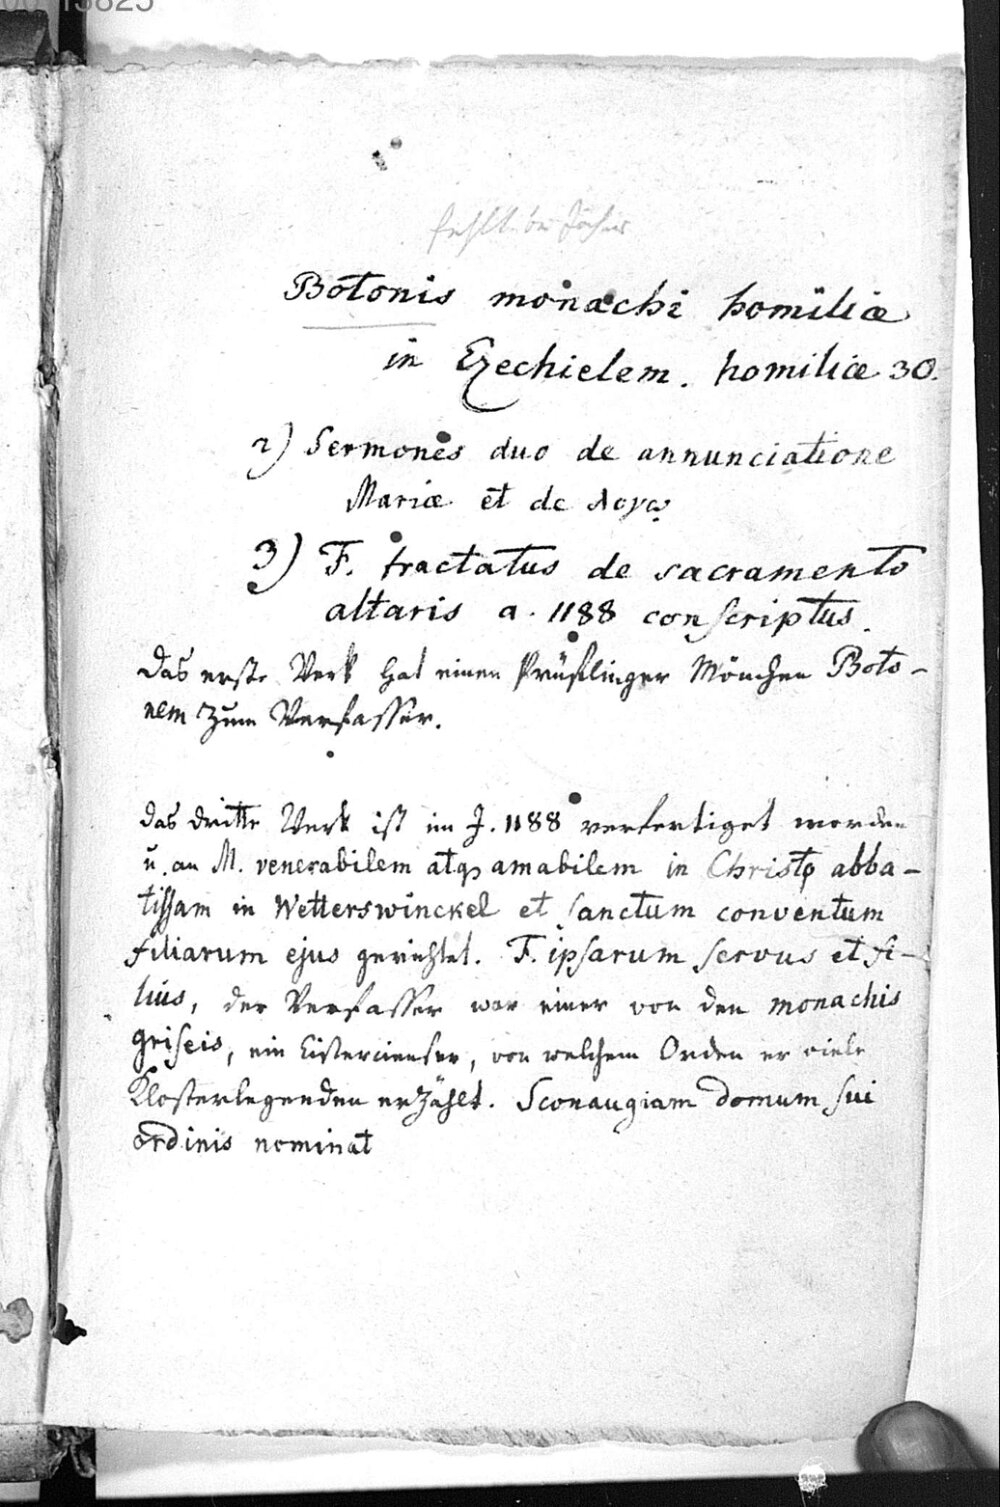 fehlt bei Jöcher
Botonis monachi homiliæ
in Ezechielem. homiliæ 30.
2) Sermones duo de annunciatione
Mariæ et de λογῳ
3) F. tractatus de sacramento
altaris a. 1188 conscriptus.
Das erste Werk hat einen Prüflinger Mönchen Boto-
nem zum Verfasser.
das dritte Werk ist im J. 1188 verfertiget worden
u. an M. venerabilem atq₃ amabilem in Christo abba-
tissam in Wetterswinckel et sanctum conventum
filiarum ejus gerichtet. F. ipsarum servus et fi-
lius, der Verfasser war einer von den monachis
griseis, ein Cistercienser, von welchem Orden er viele
Klosterlegenden erzählt. Sconaugiam domum sui
ordinis nominat